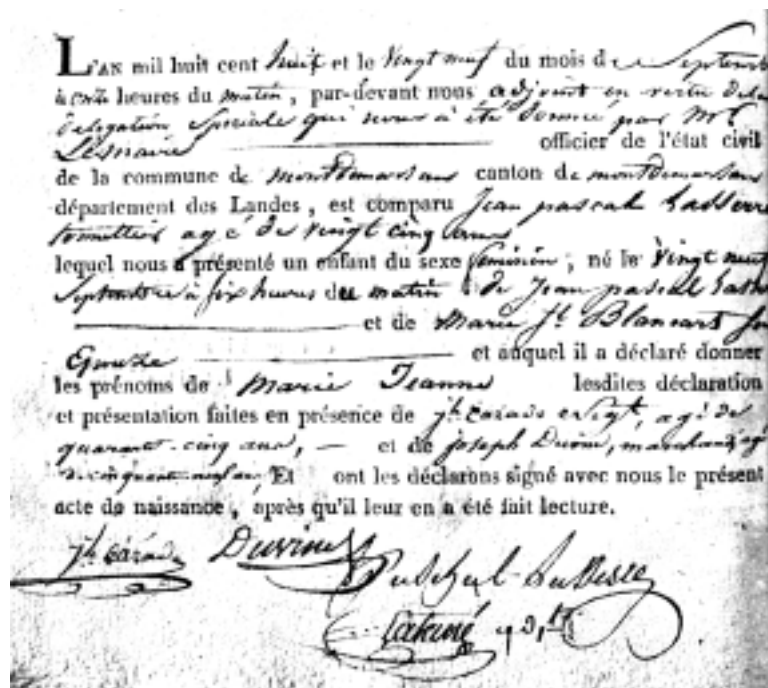 L'AN mil huit cent huit et le vingt neuf du mois de Septembre
à onze heures du matin, par-devant nous adjoint en vertu de la
delegation Speciale qui nous à été donnée par Mr
Lemaire officier de l'état civil
de la commune de montdemarsan canton de montdemarsan
département des Landes, est comparu Jean pascal Lasserre
agé de vingt cinq ans
lequel nous a présenté un enfant du sexe feminin, né le Vingt neuf
Septembre à six heures du matin de Jean pascal
et de Marie Blancart
Epouse et auquel il a déclaré donner
les prénoms de Marie Jeanne lesdites déclaration
et présentation faites en présence de jh agé de
quarante cinq ans, — et de joseph marchand agé
de cinquante Et ont les déclarans signé avec nous le présent
acte de naissance, après qu'il leur en a été fait lecture.
jh